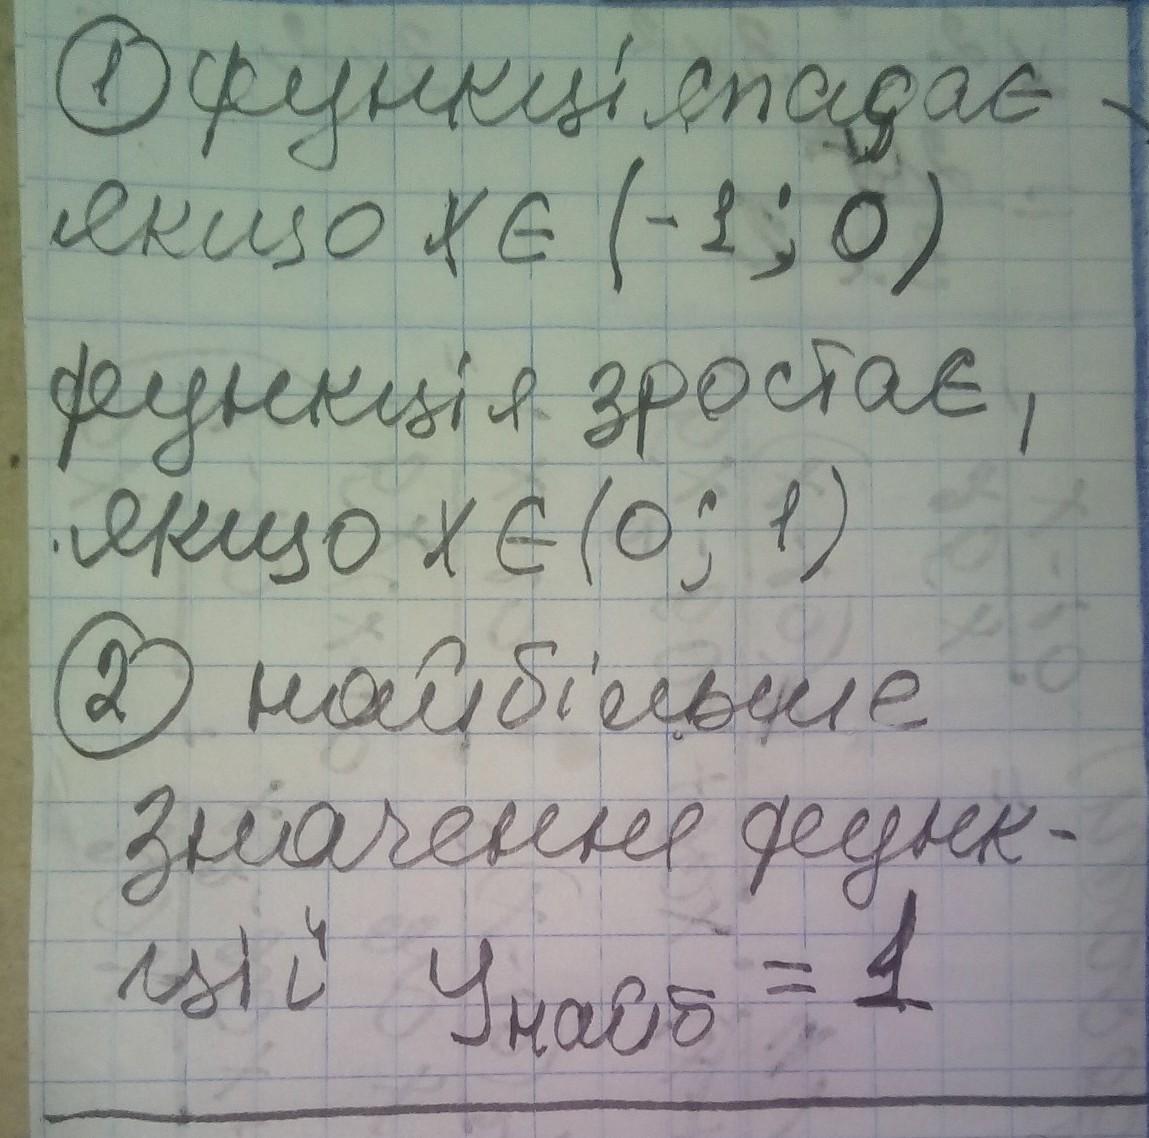 ① функція спадає,
якщо x є (-1; 0)
функція зростає,
якщо x є (0; 1)
② найбільше
значення функ-
ції yнайб = 1